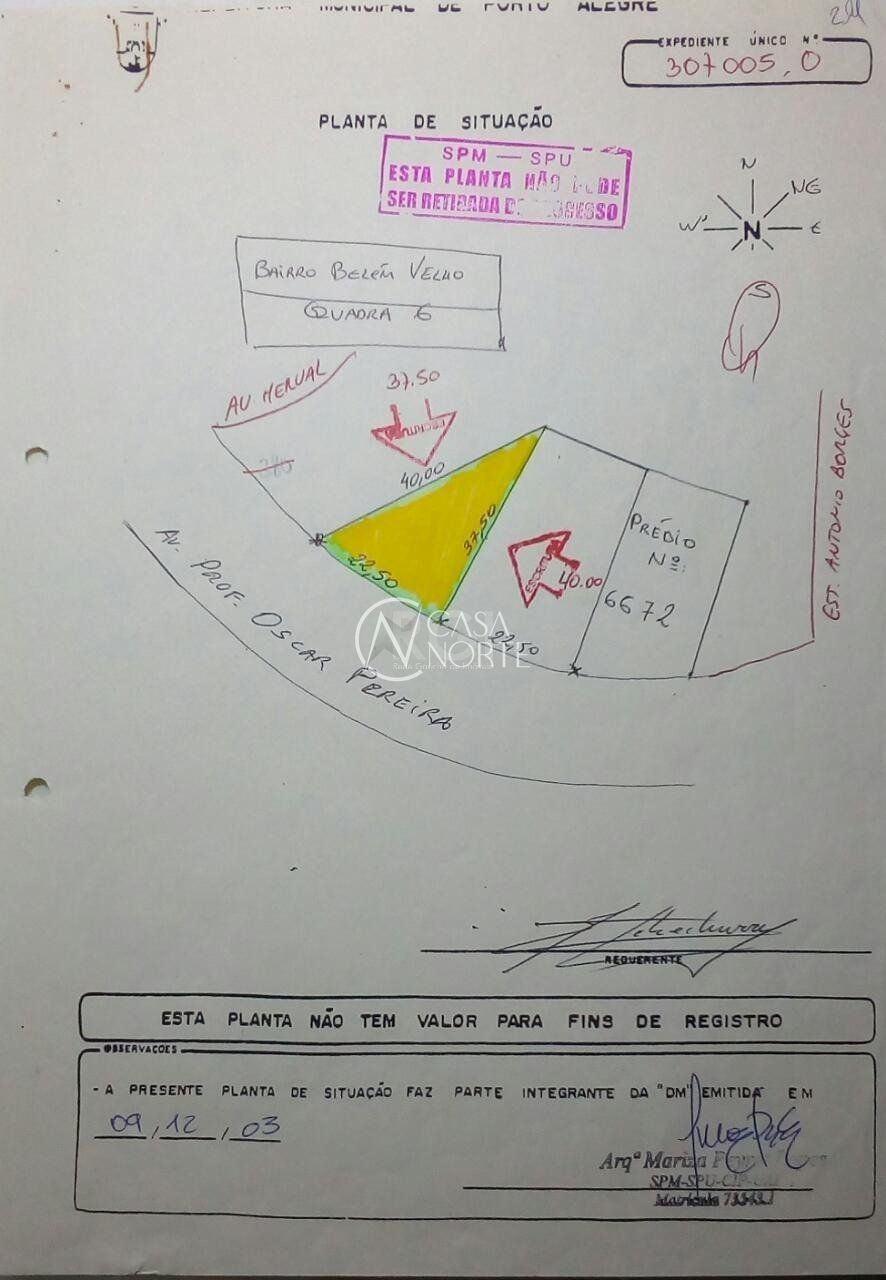 MUNICIPAL DE PORTO ALEGRE
EXPEDIENTE ÚNICO Nº
307005,0
PLANTA DE SITUAÇÃO
SPM — SPU
ESTA PLANTA NÃO PODE
SER RETIRADA DO PROCESSO
N
NE
W
N
E
S
BAIRRO BELÉM VELHO
QUADRA 6
AV HERVAL
37.50
ESCRITURA
40,00
37,50
22,50
ESCRITURA
40.00
22,50
PRÉDIO
Nº:
6672
EST. ANTONIO BORGES
AV. PROF. OSCAR PEREIRA
CASA
NORTE
REQUERENTE
ESTA PLANTA NÃO TEM VALOR PARA FINS DE REGISTRO
OBSERVAÇÕES
- A PRESENTE PLANTA DE SITUAÇÃO FAZ PARTE INTEGRANTE DA "DM" EMITIDA EM
09,12,03
Arqª Mariza
SPM-SPU-CIP-
Matrícula